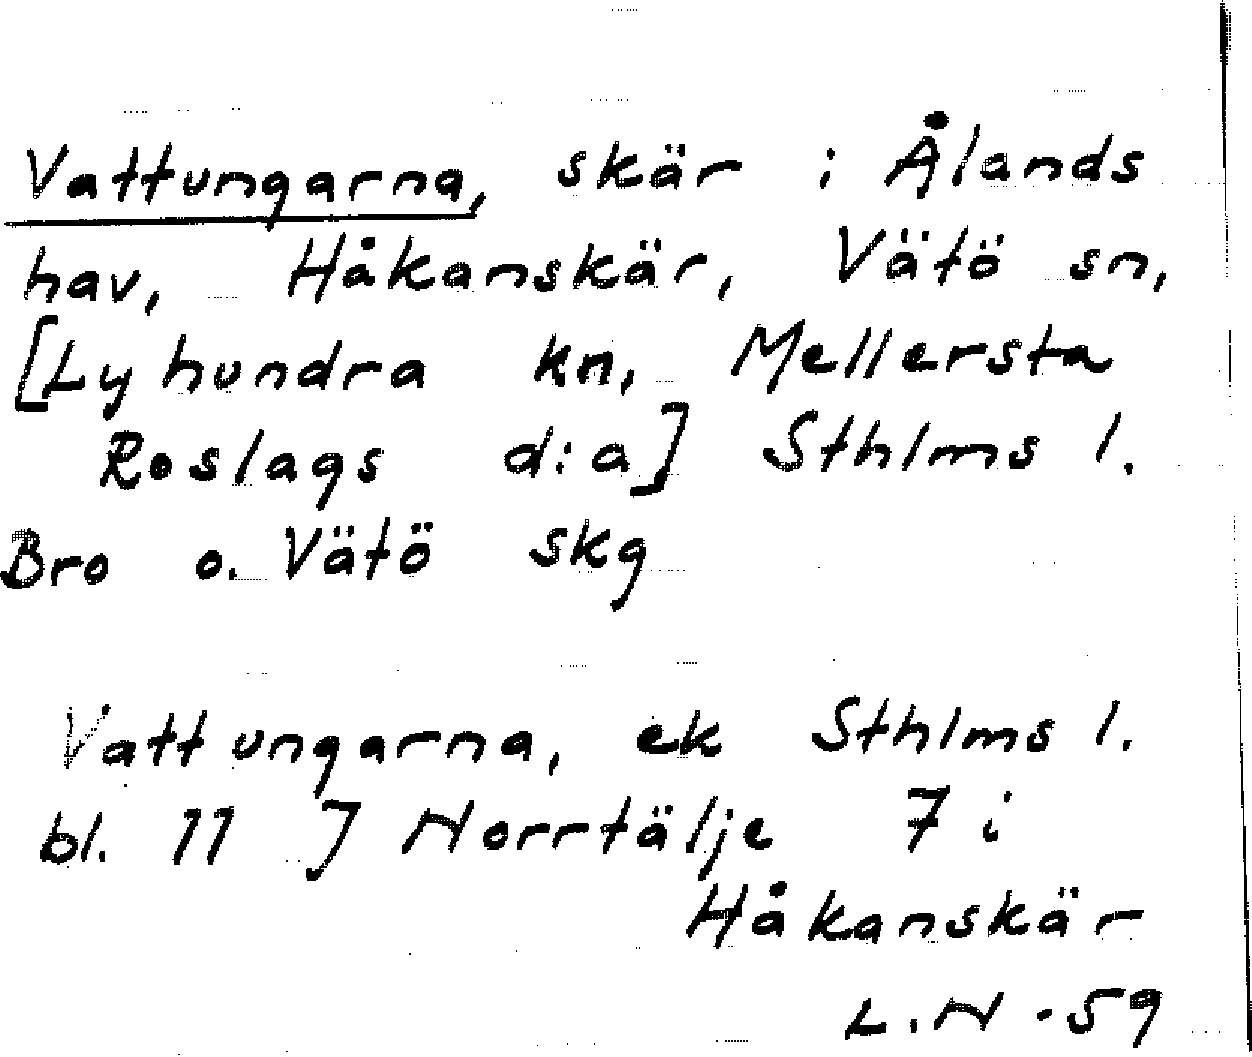 Vattungarna, skär i Ålands
hav, Håkanskär, Vätö sn,
[Lyhundra kn, Mellersta
Roslags d:a] Sthlms l.
Bro o. Vätö skg
Vattungarna, ek Sthlms l.
bl. 11 J Norrtälje 7 i
Håkanskär
L.N -59